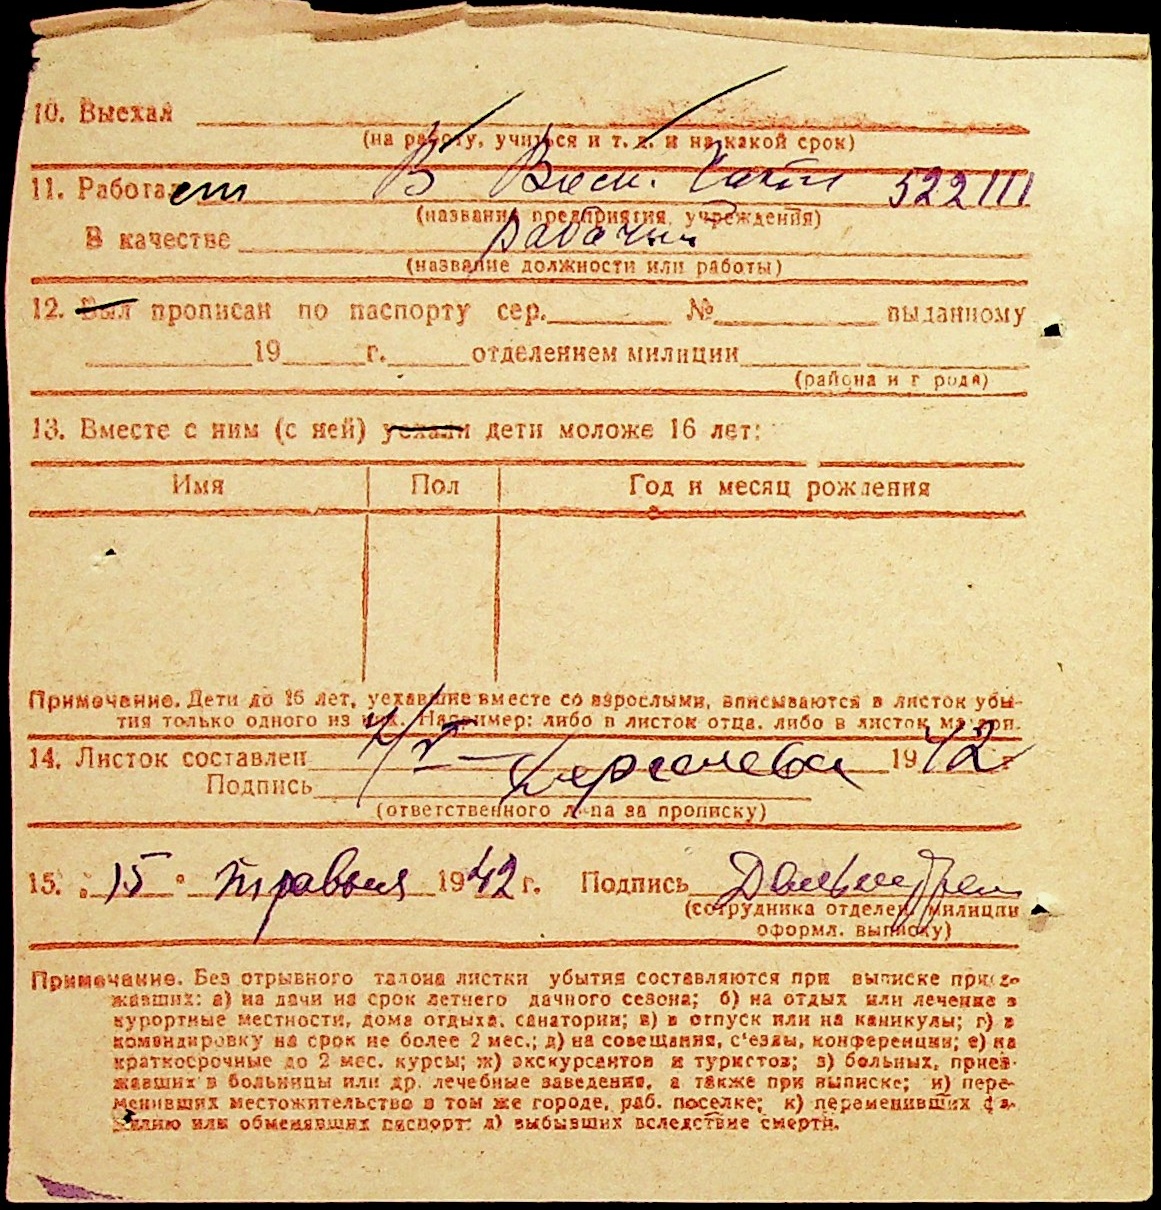 10. Выехал
(на работу, учиться и т. д. и на какой срок)
11. Работает В Воен. 522 III
(название предприятия, учреждения)
В качестве рабочий
(название должности или работы)
12. Был прописан по паспорту сер. № выданному
19 г. отделением милиции
(района и города)
13. Вместе с ним (с ней) уехали дети моложе 16 лет:
Имя Пол Год и месяц рождения
Примечание. Дети до 16 лет, уехавшие вместе со взрослыми, вписываются в листок убы-
тия только одного из них. Например: либо в листок отца, либо в листок матери.
14. Листок составлен 4/V— 1942 г.
Подпись
(ответственного лица за прописку)
15. 15 травня 1942 г. Подпись
(сотрудника отделен. милиции
оформл. выписку)
Примечание. Без отрывного талона листки убытия составляются при выписке приез-
жавших: а) на дачи на срок летнего дачного сезона; б) на отдых или лечение в
курортные местности, дома отдыха, санатории; в) в отпуск или на каникулы; г) в
командировку на срок не более 2 мес.; д) на совещания, с'езды, конференции; е) на
краткосрочные до 2 мес. курсы; ж) экскурсантов и туристов; з) больных, приез-
жавших в больницы или др. лечебные заведения, а также при выписке; и) пере-
менивших местожительство в том же городе, раб. поселке; к) переменивших фа-
милию или обменявших паспорт: л) выбывших вследствие смерти.